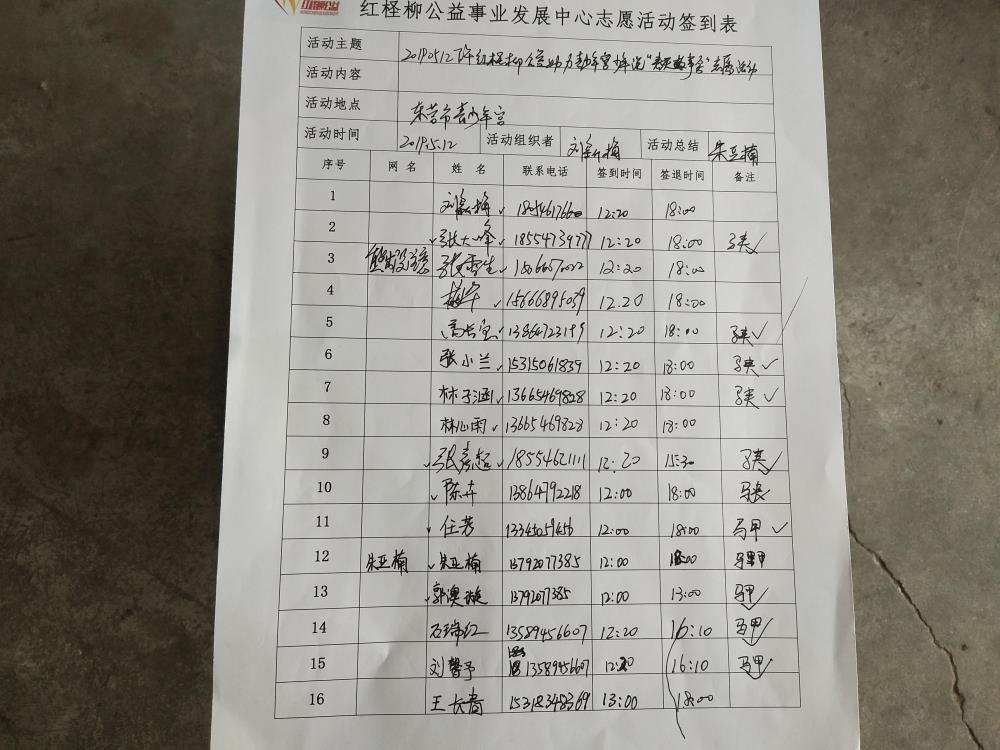 红柽柳公益事业发展中心志愿活动签到表
活动主题
活动内容
活动地点 东营市青少年宫
活动时间 2019.5.12 活动组织者 活动总结 朱亚楠
序号 网 名 姓 名 联系电话 签到时间 签退时间 备注
1 12:20 18:00
2 张大峰 18554739777 12:20 18:00 马夹
3 12:20 18:00
4 15666895039 12.20 18:00
5 13864723199 12:20 18:00 马夹
6 张小兰 15315061839 12:20 18:00 马夹
7 林子涵 13665469828 12:20 18:00 马夹
8 林心雨 13665469828 12:20 18:00
9 张彦超 18554621111 12:20 15:30 马夹
10 陈卉 13864792218 12:00 18:00 马夹
11 任芳 12:00 18:00 马甲
12 朱亚楠 朱亚楠 13792077385 12:00 18:00 马甲
13 郭澳璇 13792077385 12:00 13:00 马甲
14 石瑞红 13589456607 12:20 16:10 马甲
15 刘馨予 13589456607 12:20 16:10 马甲
16 王长春 15318348369 13:00 18:00